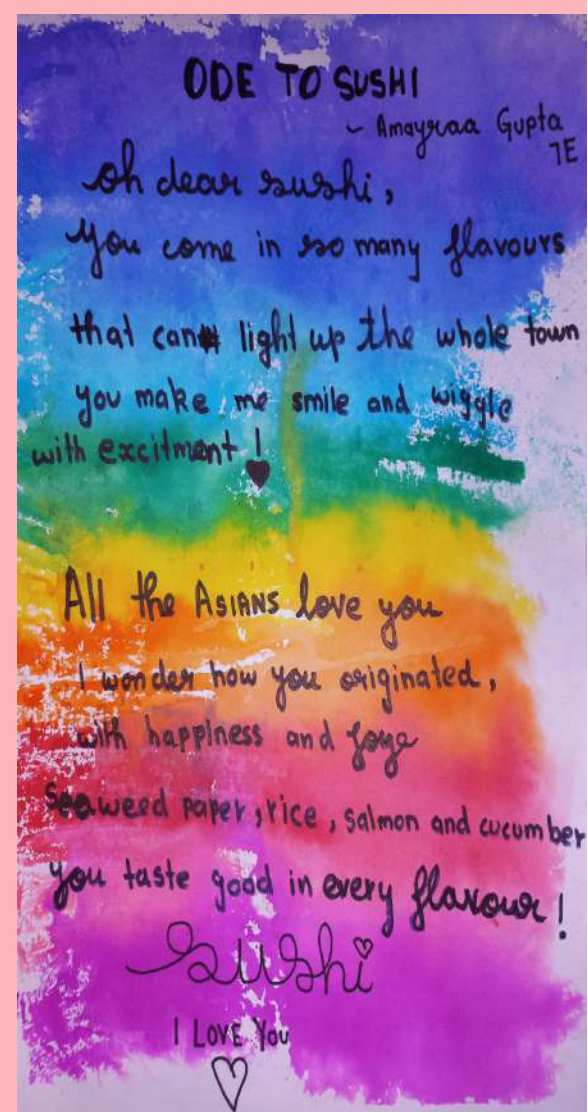 ODE TO SUSHI
~ Amayraa Gupta
7E
oh dear sushi,
You come in so many flavours
that can light up the whole town
you make me smile and wiggle
with excitment !
All the ASIANS love you
I wonder how you originated,
with happiness and joye
Seaweed paper, rice, salmon and cucumber
you taste good in every flavour!
sushi
I LOVE You